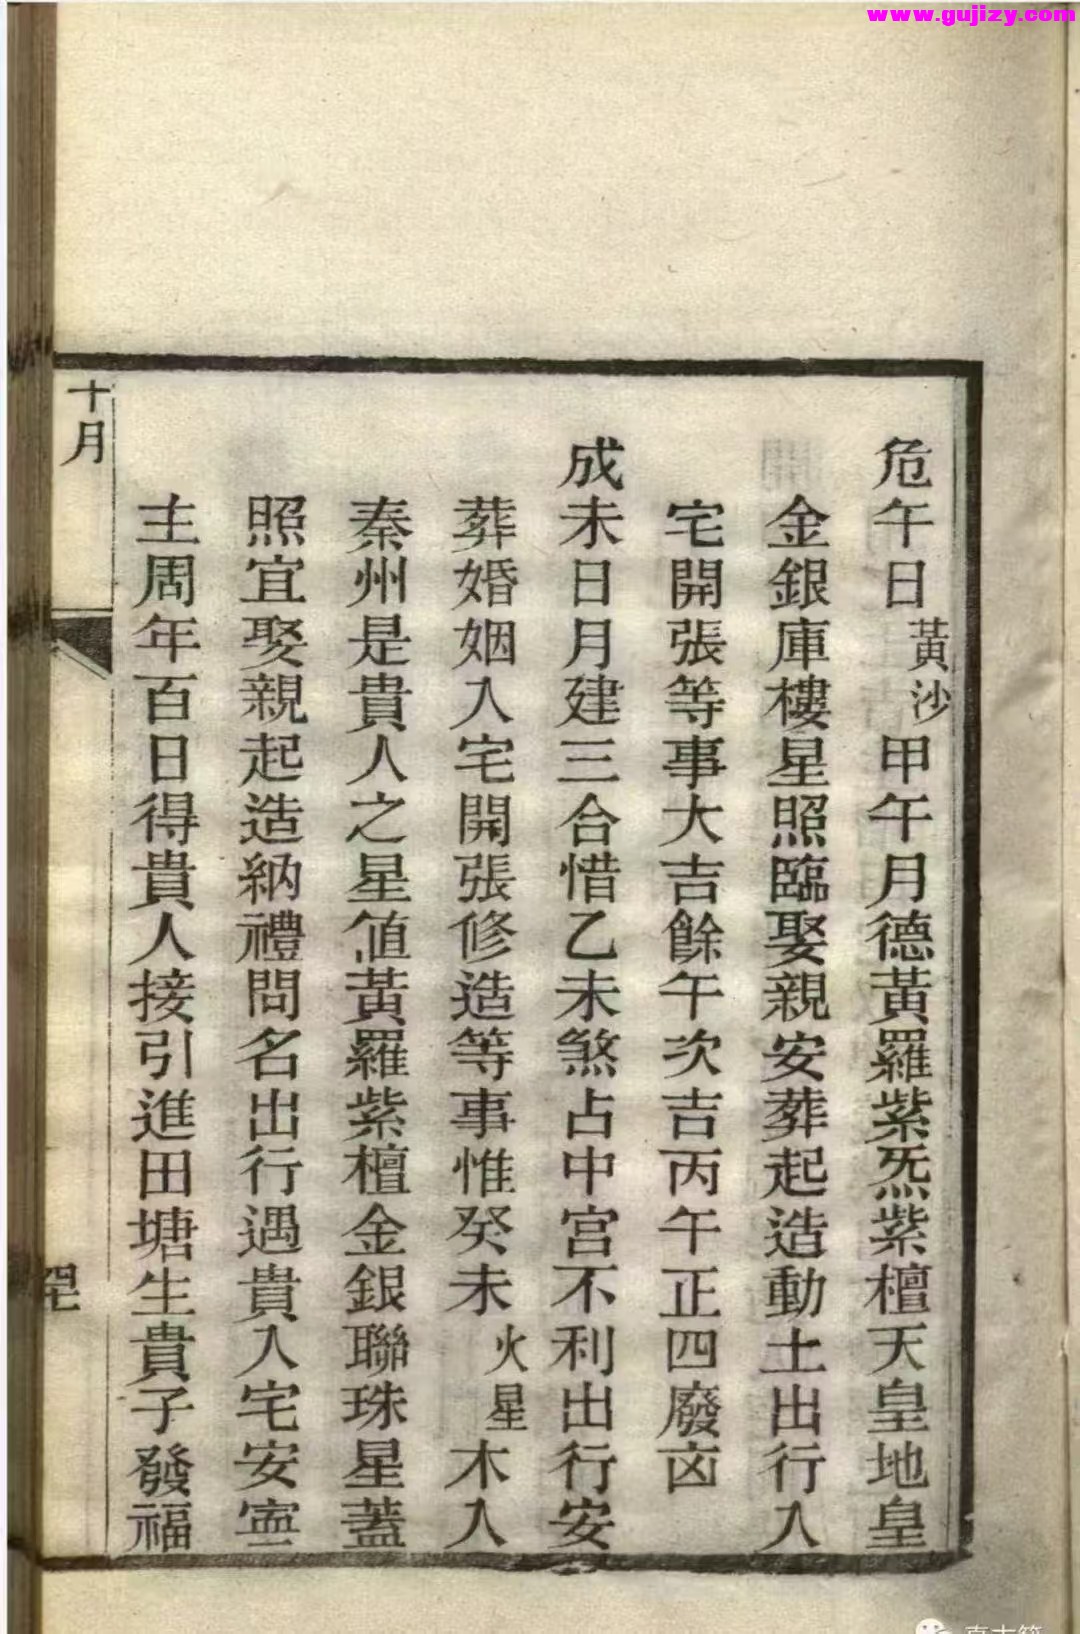 www.gujizy.com
危午日黃沙甲午月德黃羅紫炁紫檀天皇地皇
金銀庫樓星照臨娶親安葬起造動土出行入
宅開張等事大吉餘午次吉丙午正四廢凶
成未日月建三合惜乙未煞占中宮不利出行安
葬婚姻入宅開張修造等事惟癸未火星木入
秦州是貴人之星值黃羅紫檀金銀聯珠星蓋
照宜娶親起造納禮問名出行遇貴入宅安寧
主周年百日得貴人接引進田塘生貴子發福
十月